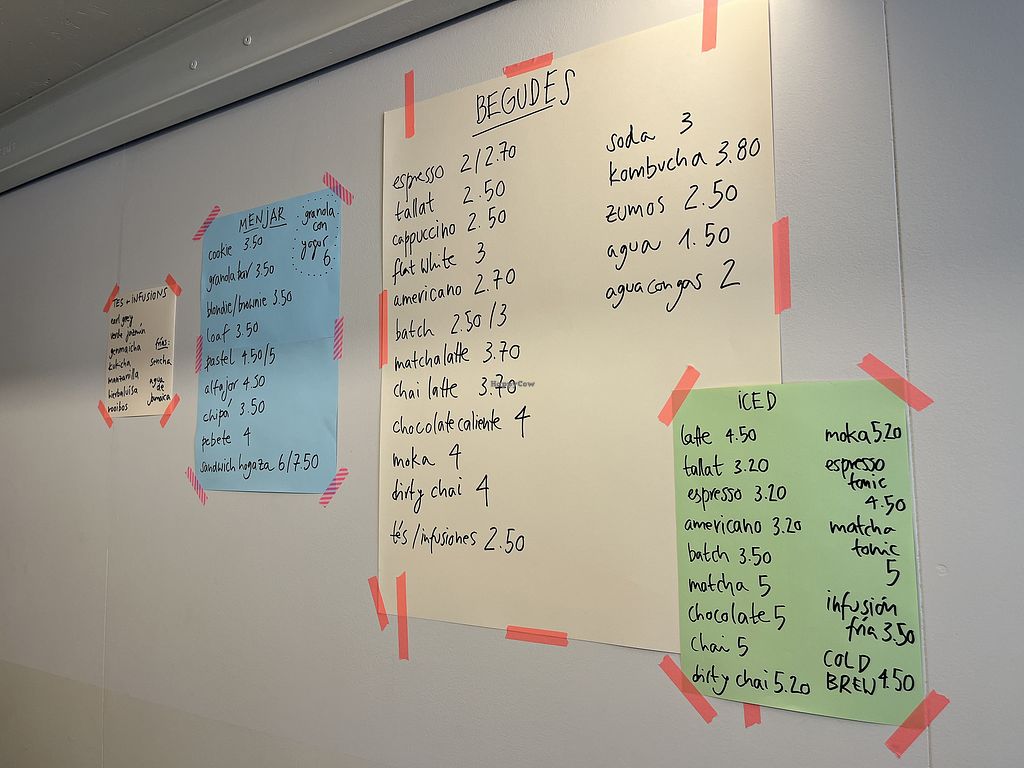 TES + INFUSIONS
earl grey
verde jazmín
genmaicha
kukicha
manzanilla
hierbaluisa
rooibos
frías:
sencha
agua
de
Jamaica
MENJAR
cookie 3.50
granola bar 3.50
blondie/brownie 3.50
loaf 3.50
pastel 4.50/5
alfajor 4.50
chipá 3.50
pebete 4
sandwich hogaza 6/7.50
granola
con
yogur
6
BEGUDES
espresso 2/2.70
tallat 2.50
cappuccino 2.50
flat white 3
americano 2.70
batch 2.50/3
matcha latte 3.70
chai latte 3.70
chocolate caliente 4
moka 4
dirty chai 4
tés/infusiones 2.50
soda 3
kombucha 3.80
zumos 2.50
agua 1.50
agua con gas 2
HappyCow
iCED
latte 4.50
tallat 3.20
espresso 3.20
americano 3.20
batch 3.50
matcha 5
chocolate 5
chai 5
dirty chai 5.20
moka 5.20
espresso
tonic
4.50
matcha
tonic
5
infusión
fría 3.50
COLD
BREW 4.50